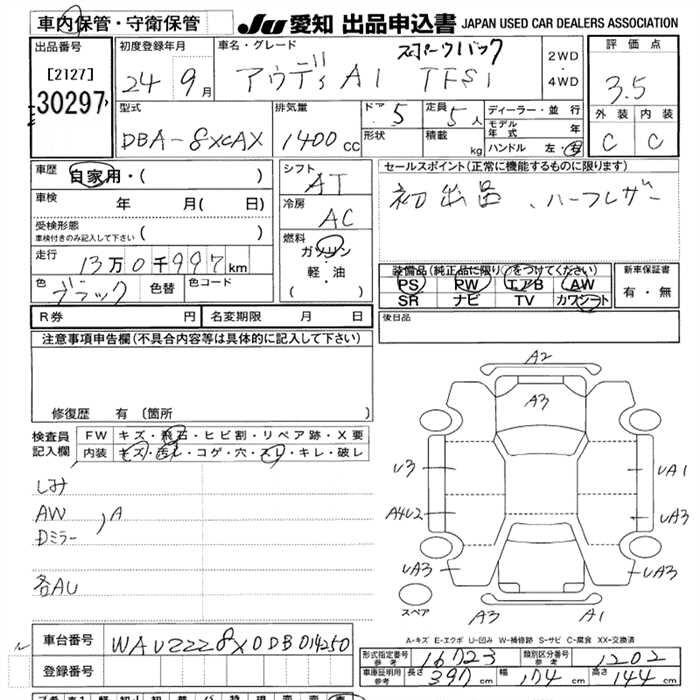 車内保管・守衛保管
JU 愛知 出品申込書 JAPAN USED CAR DEALERS ASSOCIATION
出品番号
[2127]
30297
初度登録年月
24 9月
車名・グレード
スポーツバック
アウディ A1 TFSI
2WD
・
4WD
評価点
3.5
外装 内装
C C
型式
DBA-8XCAX
排気量
1400cc
ドア 5
定員 5人
形状
積載 kg
ディーラー・並行
モデル年式 年
ハンドル 左・右
車歴
自家用・( )
車検
年 月( 日)
受検形態
車検付きのみ記入して下さい ( )
走行
13万0千997km
色
ブラック
色替
色コード
シフト
AT
冷房
AC
燃料
ガソリン
・
軽・油
( )
セールスポイント(正常に機能するものに限ります)
初出品、ハーフレザー
装備品(純正品に限り○をつけてください)
PS PW エアB AW
SR ナビ TV カワシート
新車保証書
有・無
後日品
R券 円
名変期限 月 日
注意事項申告欄(不具合内容等は具体的に記入して下さい)
修復歴 有〔箇所 〕
検査員
記入欄
FW キズ・飛石・ヒビ割・リペア跡・X要
内装 キズ・汚レ・コゲ・穴・スレ・キレ・破レ
しみ
AW 、A
Dミラー
各AU
A2
A3
U3
UA1
A4U2
UA3
UA3
UA3
A3
A1
スペア
A-キズ E-エクボ U-凹み W-補修跡 S-サビ C-腐食 XX-交換済
車台番号
WAUZZZ8X0DB014250
登録番号
形式指定番号
参考
16723
類別区分番号
参考
1202
車庫証明用
参考
長さ 397cm
幅 174cm
高さ 144cm